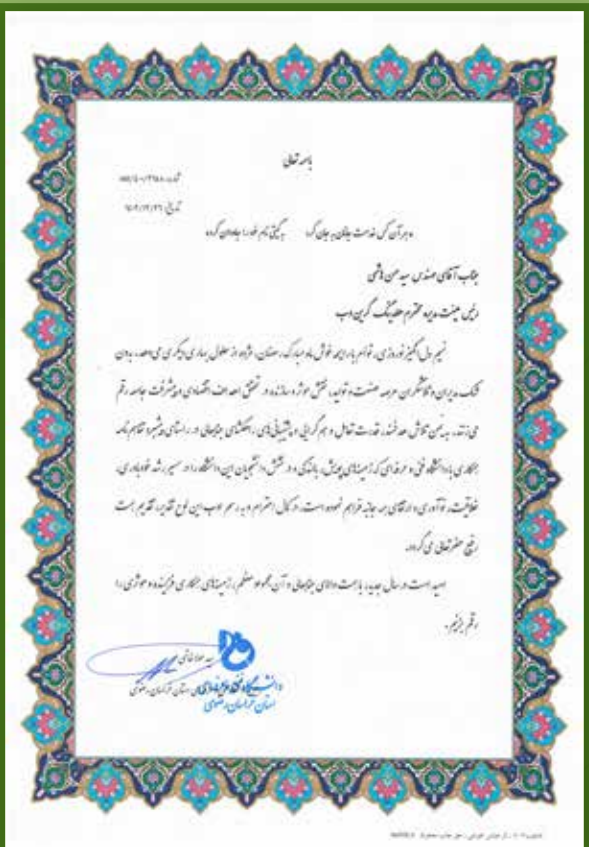 باسمه تعالی
تاریخ:
هر آن کس خدمت جانان به جان کرد به گیتی نام خود را جاودان کرد
جناب آقای مهندس سید حسن هاشمی
رئیس هیئت مدیره محترم هلدینگ گرین وب
نسیم دل انگیز نوروزی، توأم با رایحه خوش ماه مبارک رمضان، مژده از حلول بهاری دیگری می‌دهد، بدون
شک مدیران و تلاشگران عرصه صنعت و تولید، نقش موثر و سازنده در تحقق اهداف اقتصادی و پیشرفت جامعه رقم
می‌زنند، به یمن تلاش هدفمند، قدرت تعامل و هم گرایی و پشتیبانی‌های راهگشای جنابعالی در راستای پیشبرد تفاهم نامه
همکاری با دانشگاه فنی و حرفه‌ای که زمینه‌های پویش، بالندگی و درخشش دانشجویان این دانشگاه را در مسیر رشد خودباوری،
خلاقیت، نوآوری و ارتقای همه جانبه فراهم نموده است، در کمال احترام و به رسم ادب این لوح تقدیر، تقدیم همت
رفیع حضرتعالی می‌گردد.
امید است در سال جدید، با همت والای جنابعالی و آن مجموعه معظم، زمینه‌های همکاری فزاینده و موثری را
رقم بزنیم.
سید
دانشگاه فنی و حرفه‌ای استان خراسان رضوی
استان خراسان رضوی